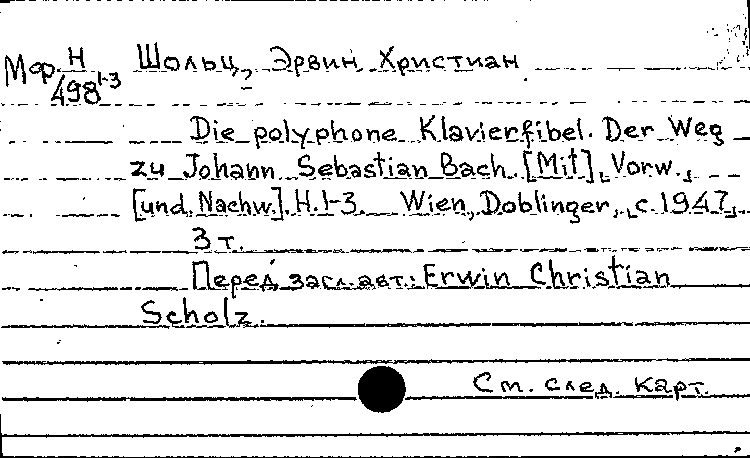 Мор. Н Шольц, Эрвин Христиан
498 1-3 ?
Die polyphone Klavierfibel. Der Weg
zu Johann Sebastian Bach. [Mit] „Vorw.„
[und Nachw.]. H.1-3. Wien, Doblinger, „c.1947„.
3 т.
Перед загл. авт.: Erwin Christian
Scholz.
См. след. карт.